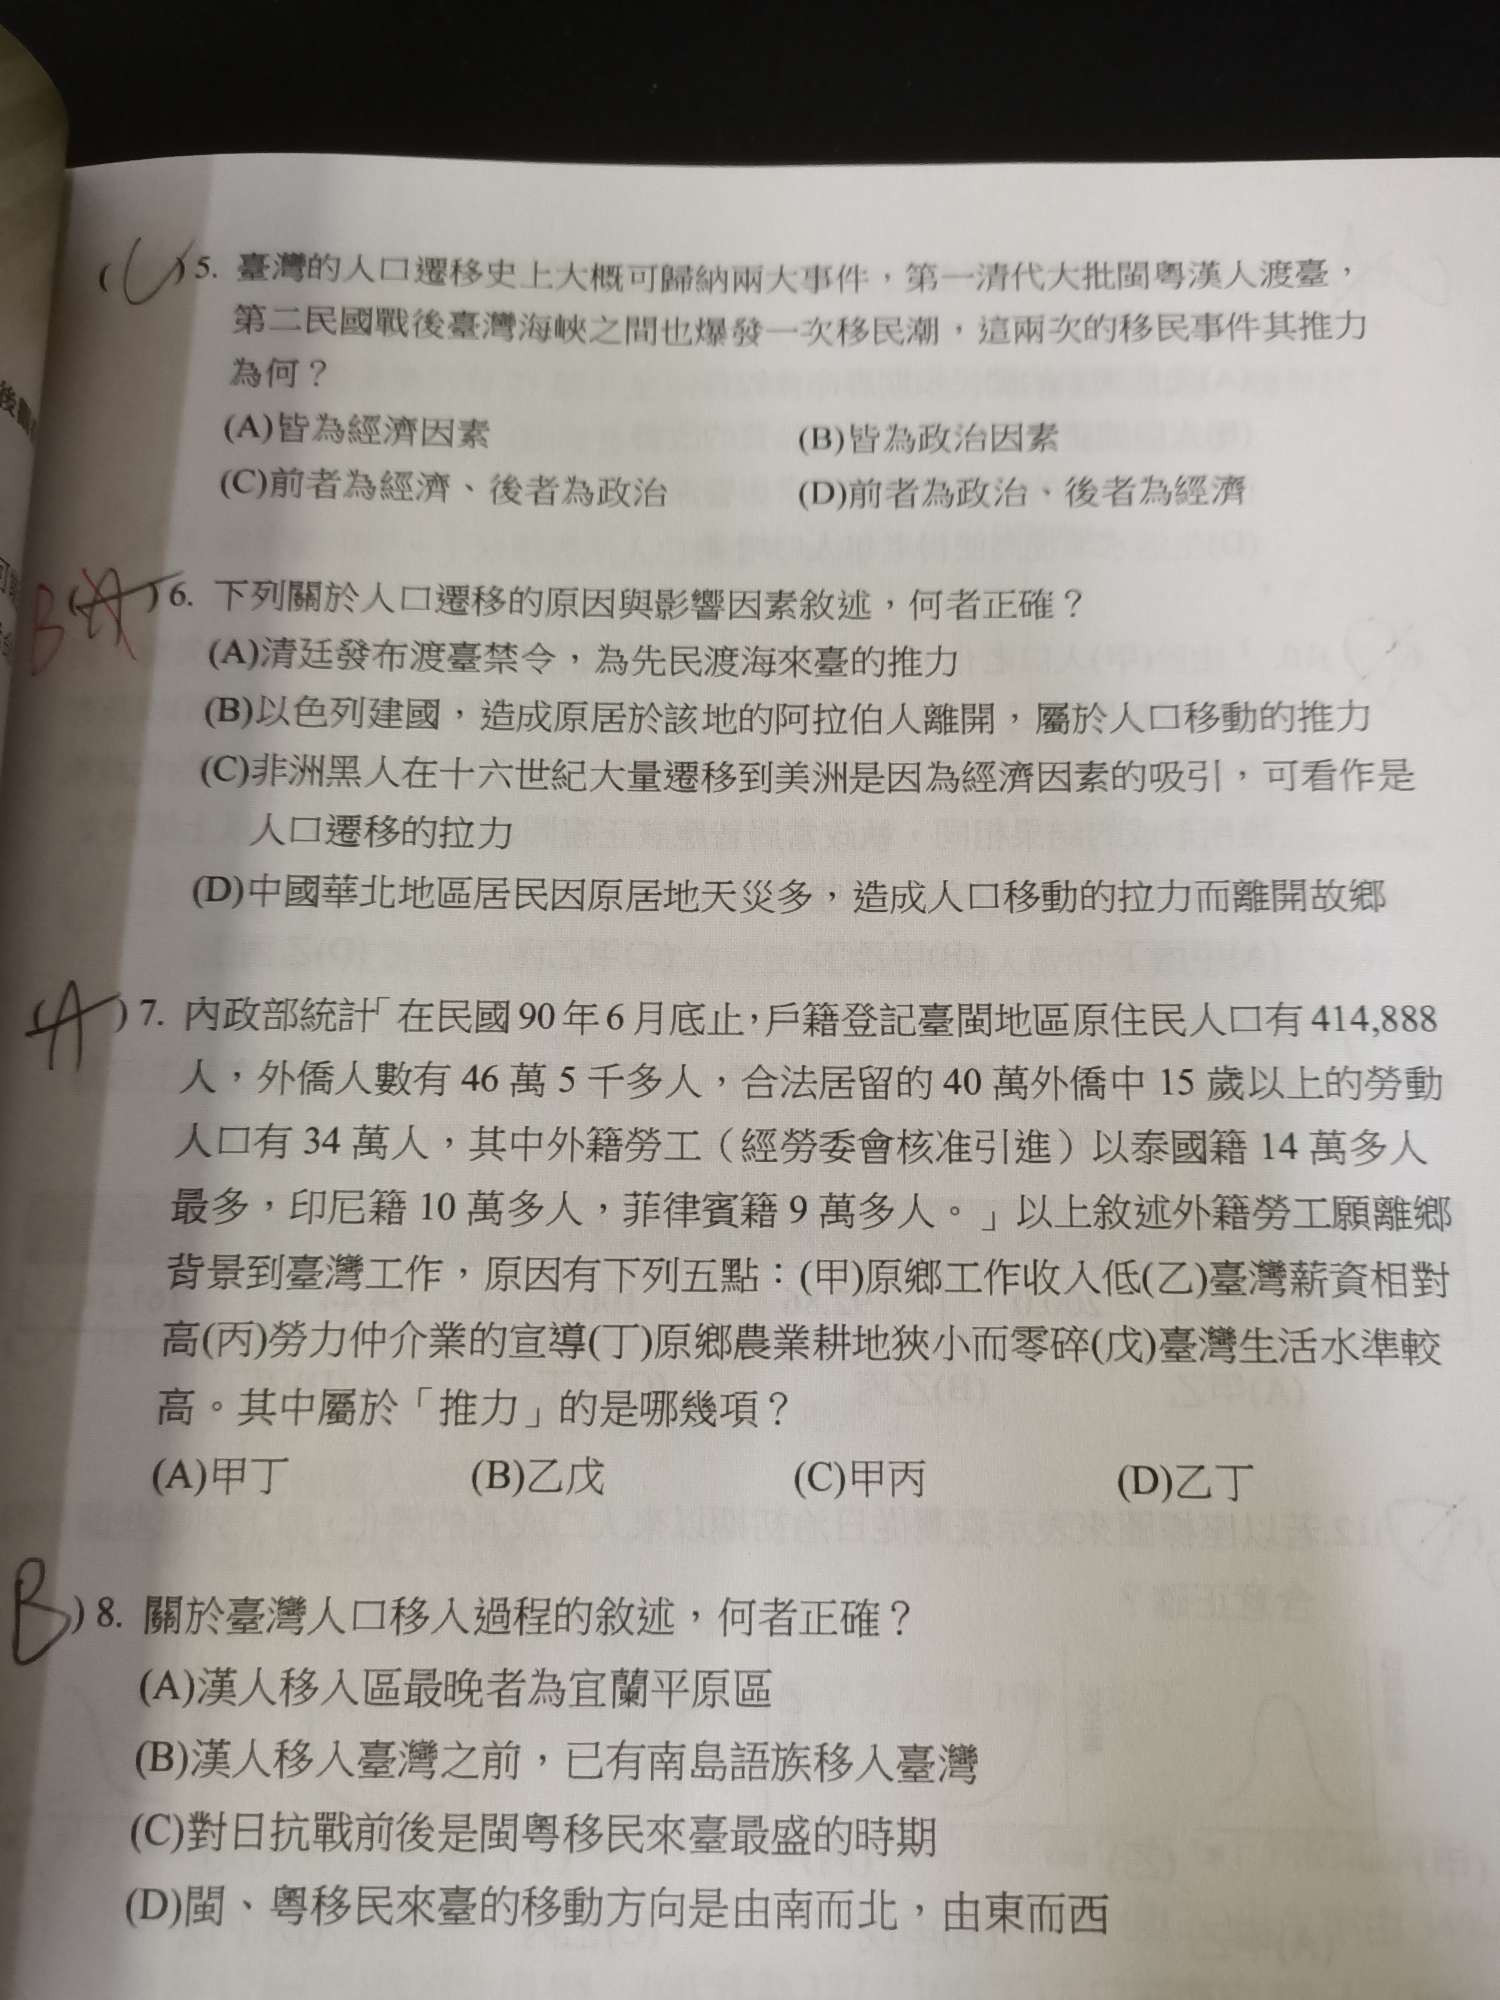 (C)5. 臺灣的人口遷移史上大概可歸納兩大事件，第一清代大批閩粵漢人渡臺，
第二民國戰後臺灣海峽之間也爆發一次移民潮，這兩次的移民事件其推力
為何？
(A)皆為經濟因素 (B)皆為政治因素
(C)前者為經濟、後者為政治 (D)前者為政治、後者為經濟
B(A)6. 下列關於人口遷移的原因與影響因素敘述，何者正確？
(A)清廷發布渡臺禁令，為先民渡海來臺的推力
(B)以色列建國，造成原居於該地的阿拉伯人離開，屬於人口移動的推力
(C)非洲黑人在十六世紀大量遷移到美洲是因為經濟因素的吸引，可看作是
人口遷移的拉力
(D)中國華北地區居民因原居地天災多，造成人口移動的拉力而離開故鄉
(A)7. 內政部統計「在民國90年6月底止，戶籍登記臺閩地區原住民人口有414,888
人，外僑人數有 46 萬 5 千多人，合法居留的 40 萬外僑中 15 歲以上的勞動
人口有 34 萬人，其中外籍勞工（經勞委會核准引進）以泰國籍 14 萬多人
最多，印尼籍 10 萬多人，菲律賓籍 9 萬多人。」以上敘述外籍勞工願離鄉
背景到臺灣工作，原因有下列五點：(甲)原鄉工作收入低(乙)臺灣薪資相對
高(丙)勞力仲介業的宣導(丁)原鄉農業耕地狹小而零碎(戊)臺灣生活水準較
高。其中屬於「推力」的是哪幾項？
(A)甲丁 (B)乙戊 (C)甲丙 (D)乙丁
B)8. 關於臺灣人口移入過程的敘述，何者正確？
(A)漢人移入區最晚者為宜蘭平原區
(B)漢人移入臺灣之前，已有南島語族移入臺灣
(C)對日抗戰前後是閩粵移民來臺最盛的時期
(D)閩、粵移民來臺的移動方向是由南而北，由東而西